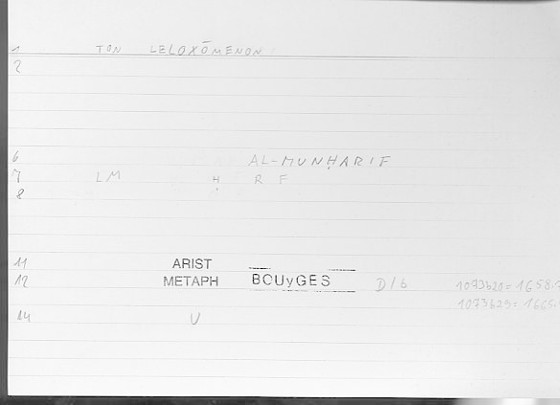 1 TON LELOXŌMENON
2
6 AL-MUNḤARIF
7 LM Ḥ R F
8
11 ARIST
12 METAPH BOUyGES D/b 1073b20=1658.
1073b29=1665.
14 U